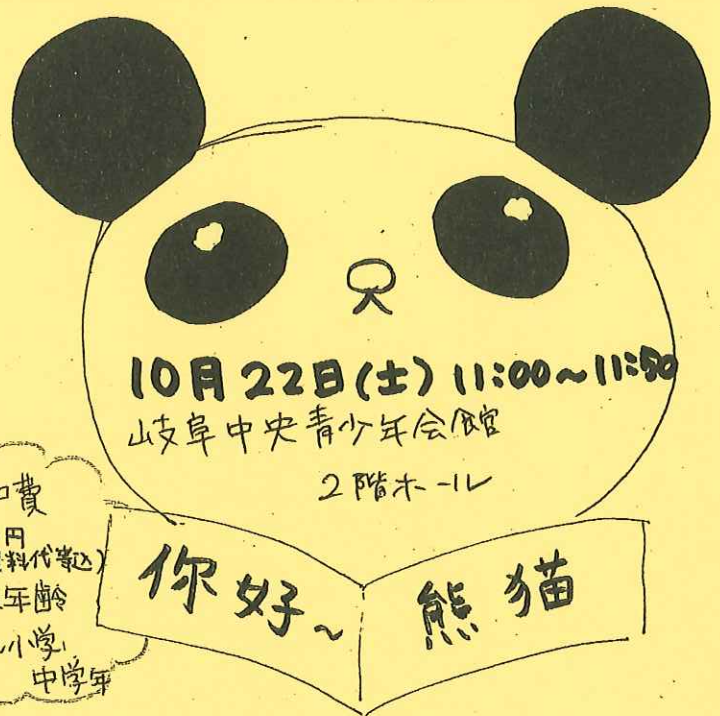 10月22日(土) 11:00~11:50
岐阜中央青少年会館
2階ホール
費
円
料代等込)
年齢
小学
中学年
你好~ 熊猫